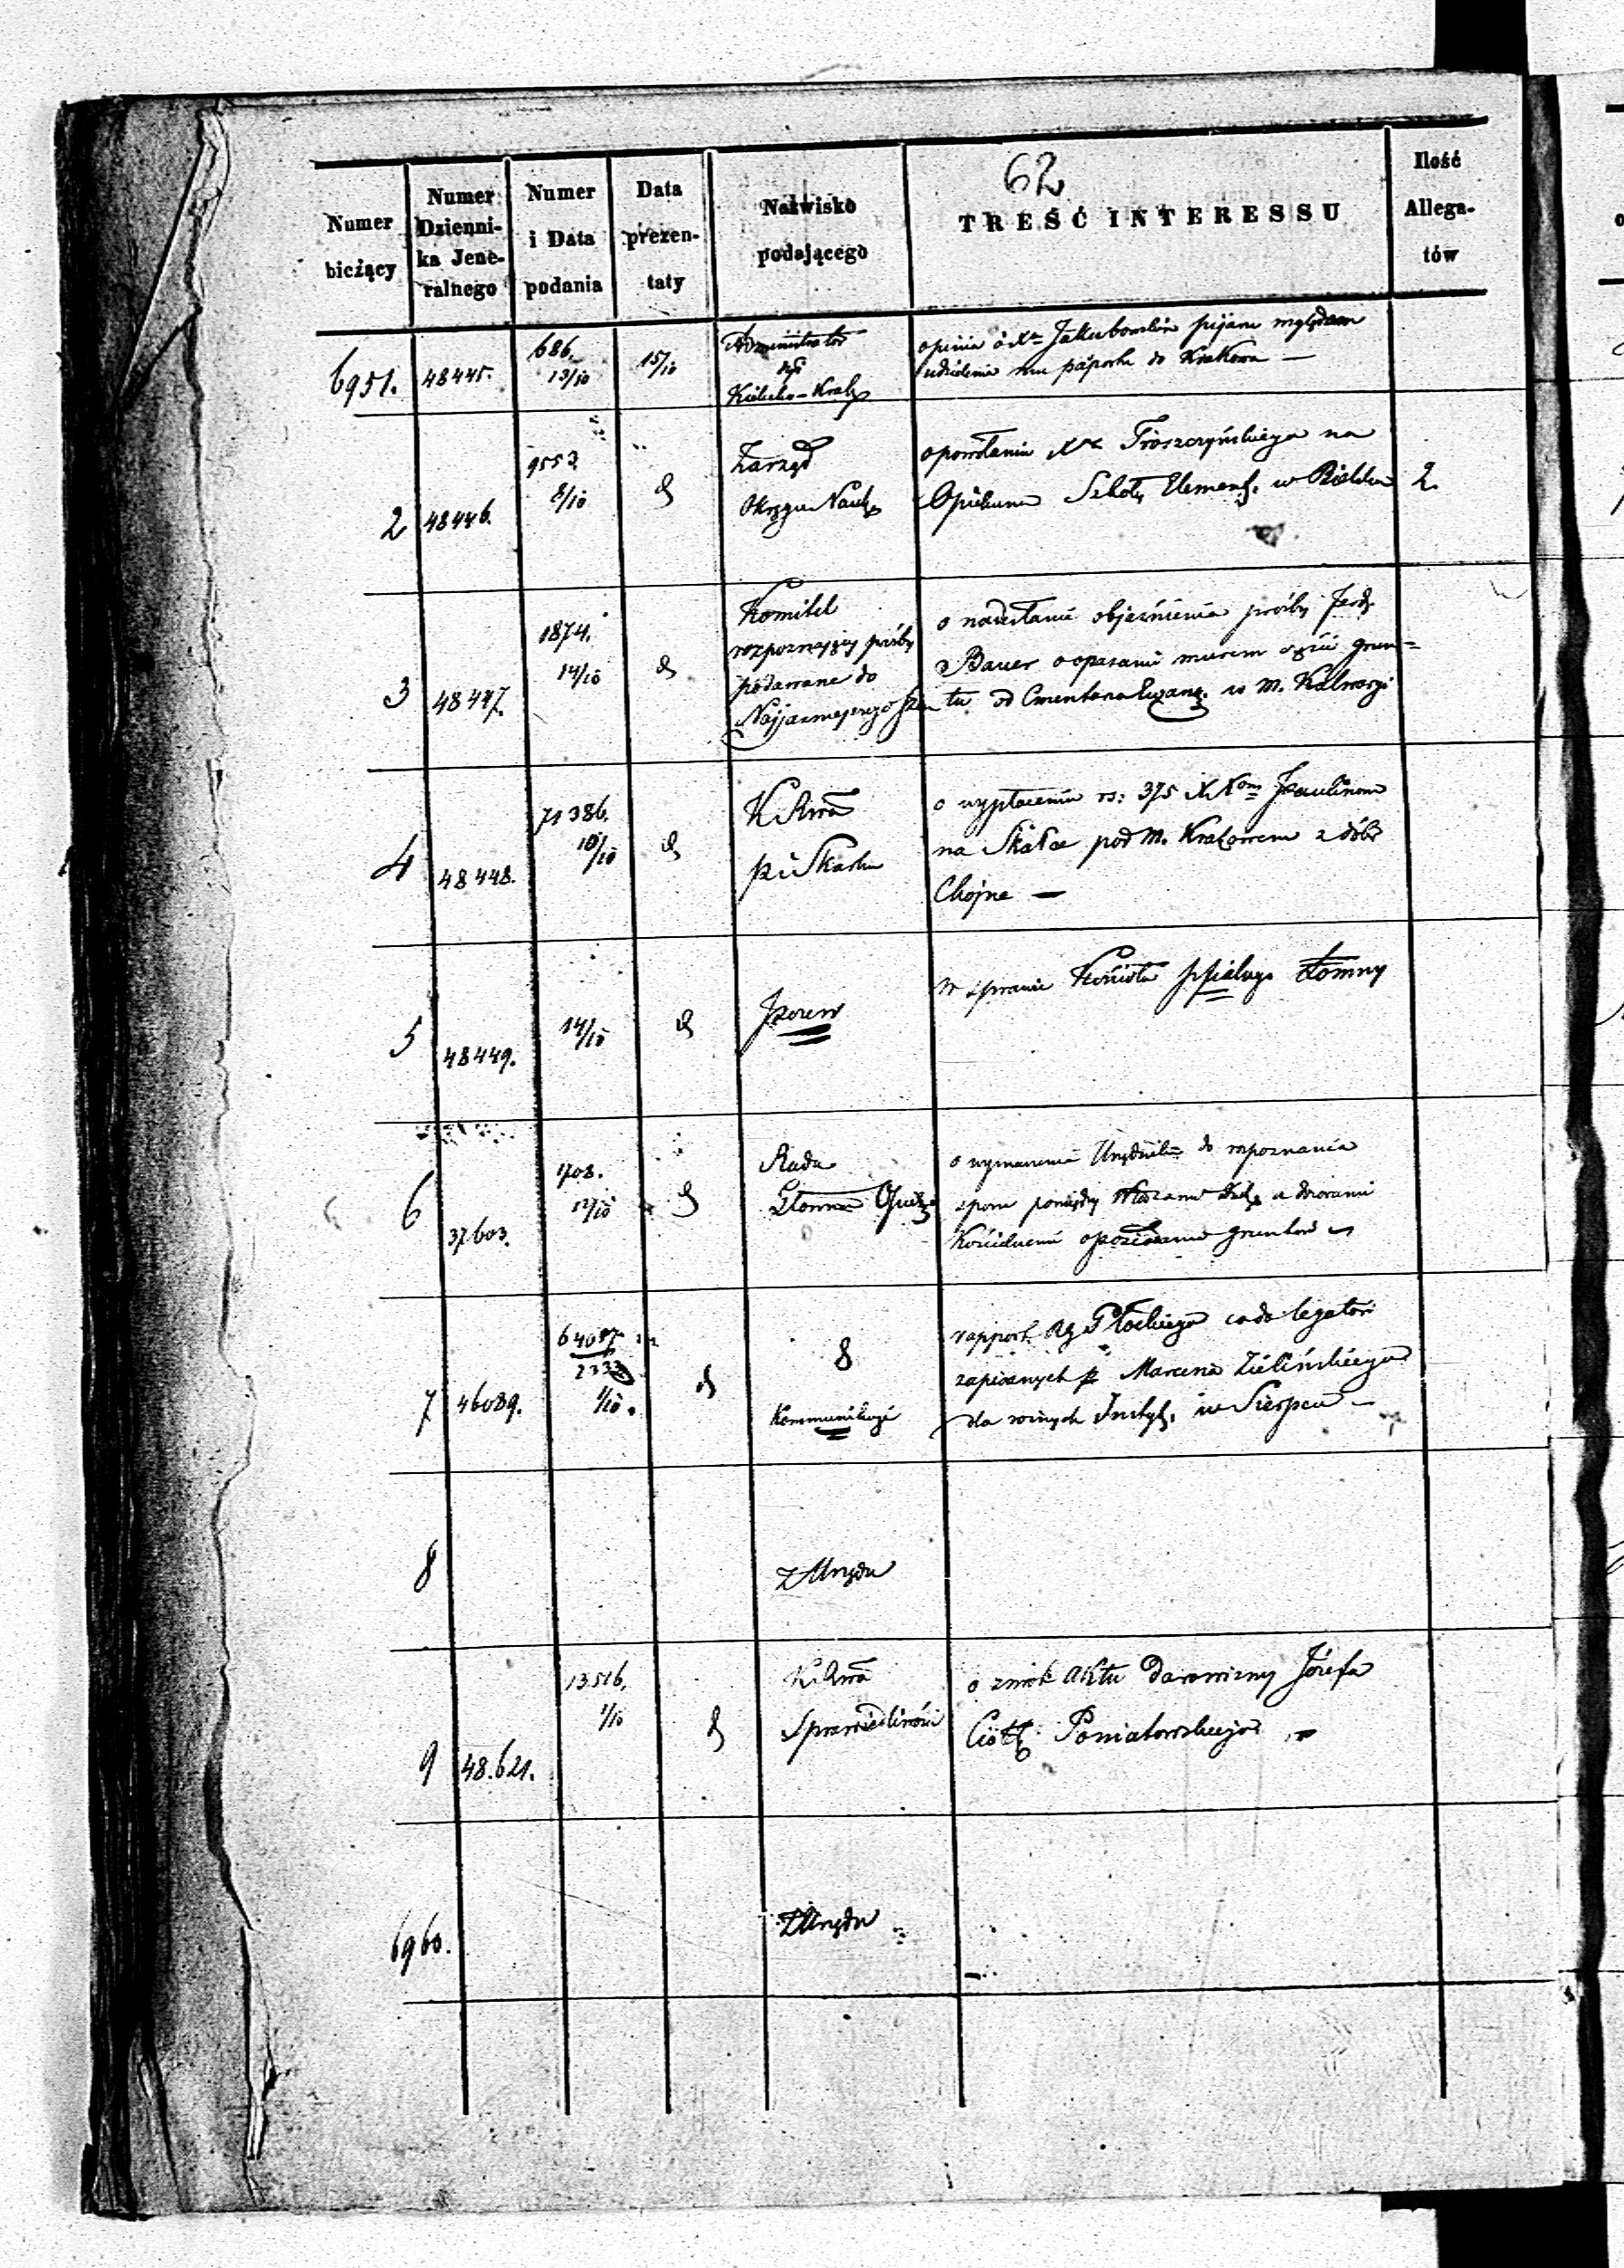 62
Numer bieżący
Numer Dzienni-ka Jene-ralnego
Numer i Data podania
Data prezen-taty
Nazwisko podającego
TREŚĆ INTERESSU
Ilość Allega-tów
6951.
48445.
686.
13/10
15/10
Administrator
Kielecko-Krak
opinia o Xu Jakubowskim pijarze względem
udzielenia mu paportu do Krakowa —
2
48446.
9553.
8/10
Zarząd
Okręgu Nauk
o powołaniu Xa Troszczyńskiego na
Opiekuna Szkoły Element. w Bielsku
2.
3
48447.
1874.
14/10
Komitet
rozpoznający prośby
podawane do
Najjaśniejszego
o nadesłanie objaśnienia prośby
Bauer o opasanie murem części grun=
tu od Cmentarza Ewang. w M. Kalwaryi
4
48448.
71386.
10/10
K Rwa
p i Skarbu
o wypłaceniu rs: 375 XXom Paulinom
na Skałce pod M. Krakowem z dóbr
Chojne —
5
48449.
14/10
w sprawie Kościoła Łomny
6
37.603.
1708.
12/10
Rada
Główna Opiek
o wyznaczenie Urzędnika do rozpoznania
sporu pomiędzy a dozorami
Kościelnemi gruntów
7
46089.
64087
2333
1/10.
Kommunikuje
rapport Rg Płockiego co do legatów
zapisanych p Marcina Zielińskiego
dla różnych Instyt. w Sierpcu —
8
z Urzędu
9
48.621.
13.516.
1/10
K Rwa
Sprawiedliwości
o zwrot aktu darowizny Józefa
Ciołk Poniatowskiego
6960.
z Urzędu